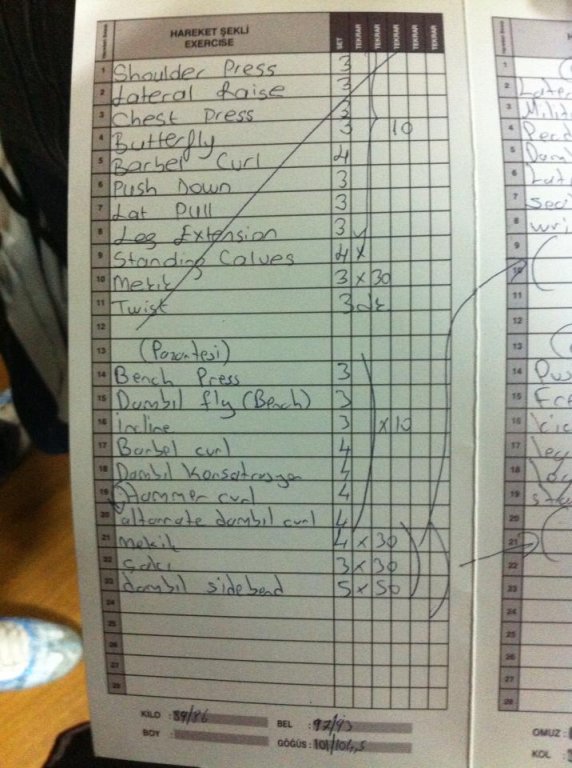 HAREKET ŞEKLİ
EXERCISE
SET TEKRAR TEKRAR TEKRAR TEKRAR
1 Shoulder Press 3
2 Lateral Raise 3
3 Chest Press 3
4 Butterfly 3 10
5 Barbel Curl 4
6 Push Down 3
7 Lat Pull 3
8 Leg Extension 3
9 Standing Calves 4 x
10 Mekik 3 x 30
11 Twist 3 dk
12
13 (Pazartesi)
14 Bench Press 3
15 Dambıl fly (Bench) 3
16 incline 3 x 10
17 Barbel curl 4
18 Dambıl Konsatrasyon 4
19 Hammer curl 4
20 alternate dambıl curl 4
21 mekik 4 x 30
22 3 x 30
23 dambıl sidebend 5 x 50
24
25
26
27
28
KİLO : 89/86
BOY :
BEL : 97/93
GÖĞÜS : 101/104,5
1
2 Late
3 Milit
4
5 Dam
6 Lat
7
8 wri
9
10
11
12
13
14
15
16
17
18
19
20
21
22
23
24
25
26
27
28
OMUZ :
KOL :